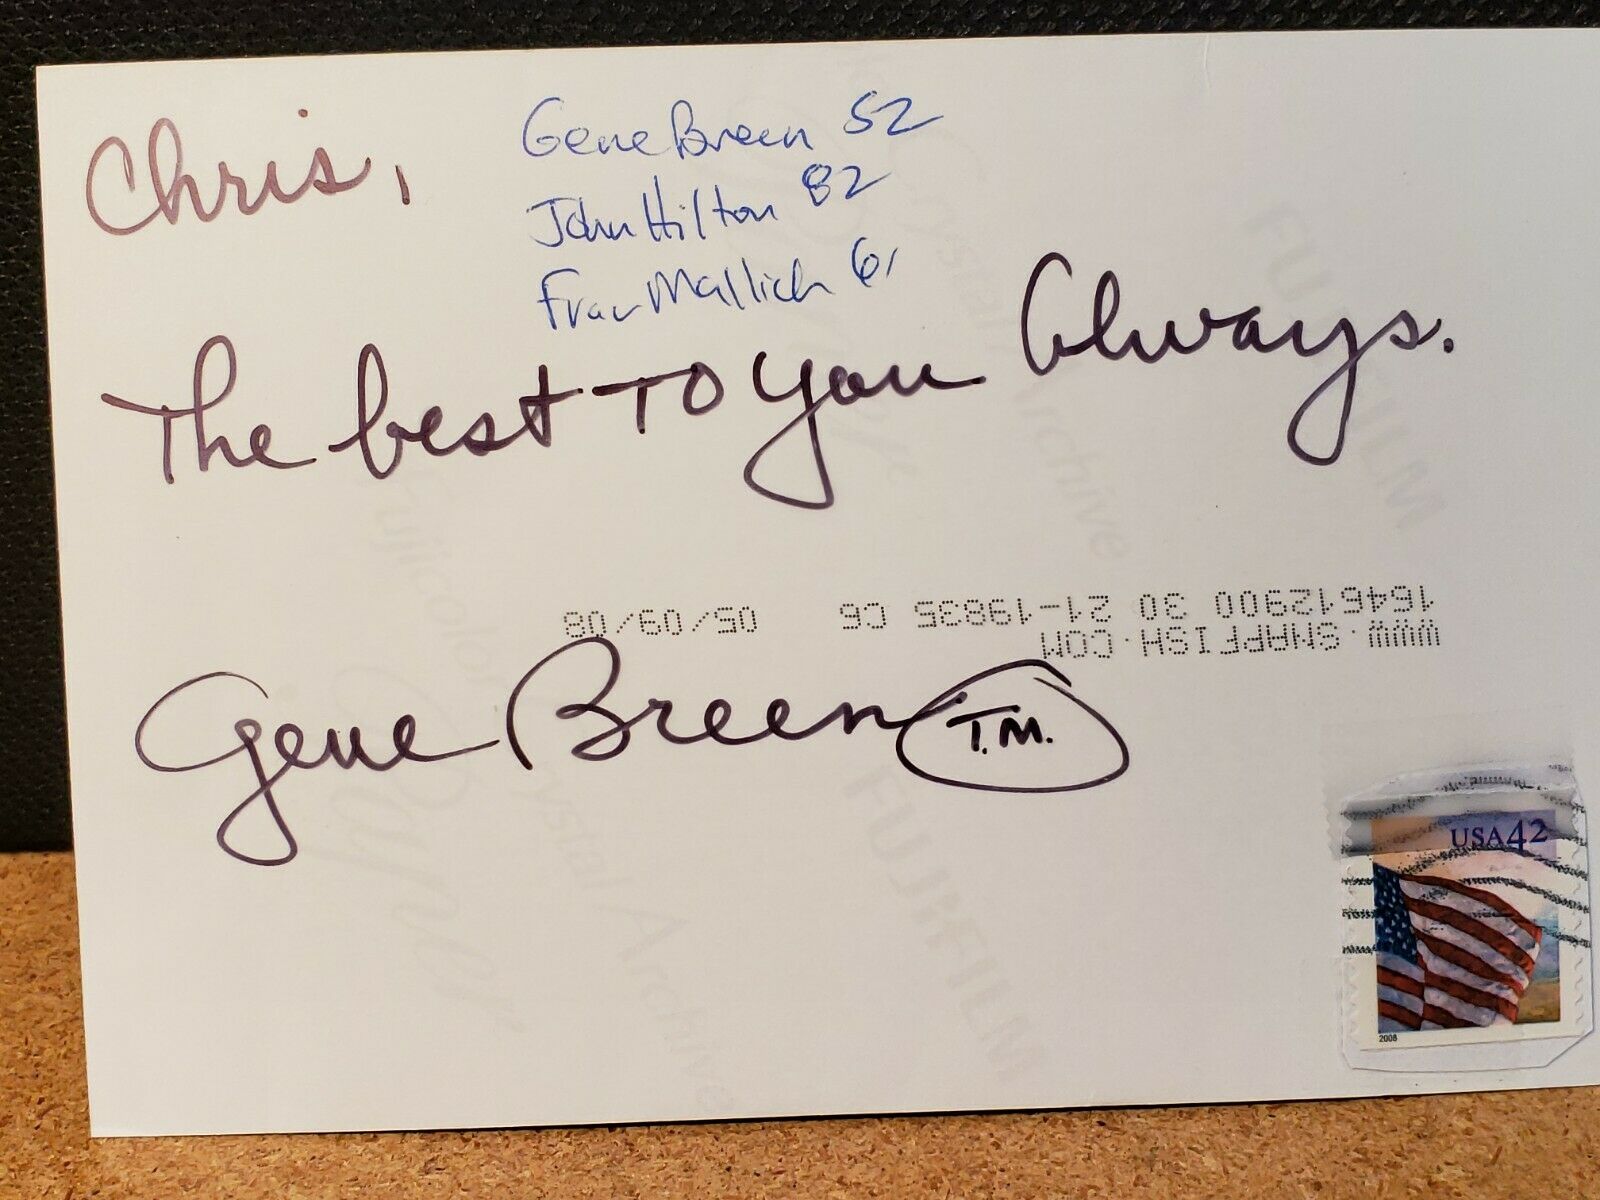 Chris,
Gene Breen 52
John Hilton 82
Fran Mallich 61
The best To you Always.
05/09/08
164612900 30 21-19835 C6
WWW.SNAPFISH.COM
Gene Breen T.M.
Fujicolor Crystal Archive
FUJIFILM
Crystal Archive
FUJIFILM
USA 42
2008